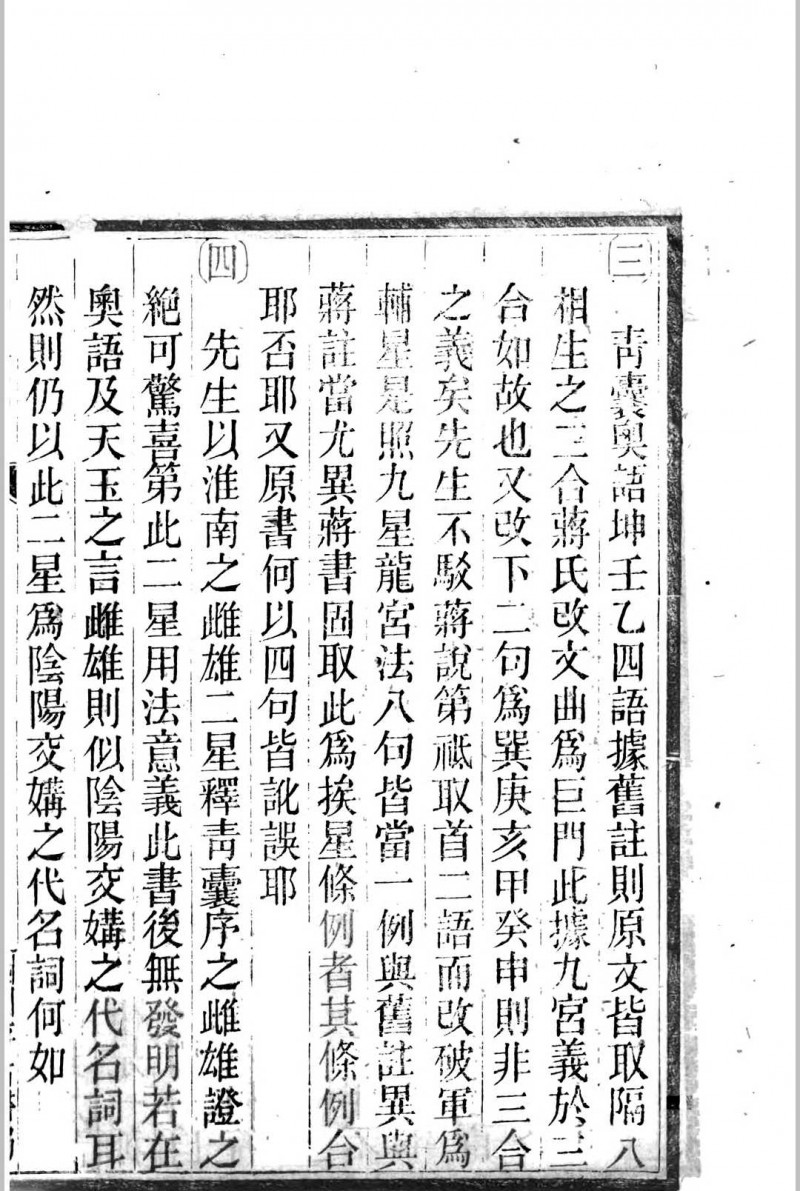 三
青囊奧語坤壬乙四語據舊註則原文皆取隔八
相生之三合蔣氏改文曲爲巨門此據九宮義於三
合如故也又改下二句爲巽庚亥甲癸申則非三合
之義矣先生不駁蔣說第祗取首二語而改破軍爲
輔星是照九星龍宮法八句皆當一例與舊註異與
蔣註當尤異蔣書固取此爲挨星條例者其條例合
耶否耶又原書何以四句皆訛誤耶
四
先生以淮南之雌雄二星釋靑囊序之雌雄證之
絕可驚喜第此二星用法意義此書後無發明若在
奧語及天玉之言雌雄則似陰陽交媾之代名詞耳
然則仍以此二星爲陰陽交媾之代名詞何如